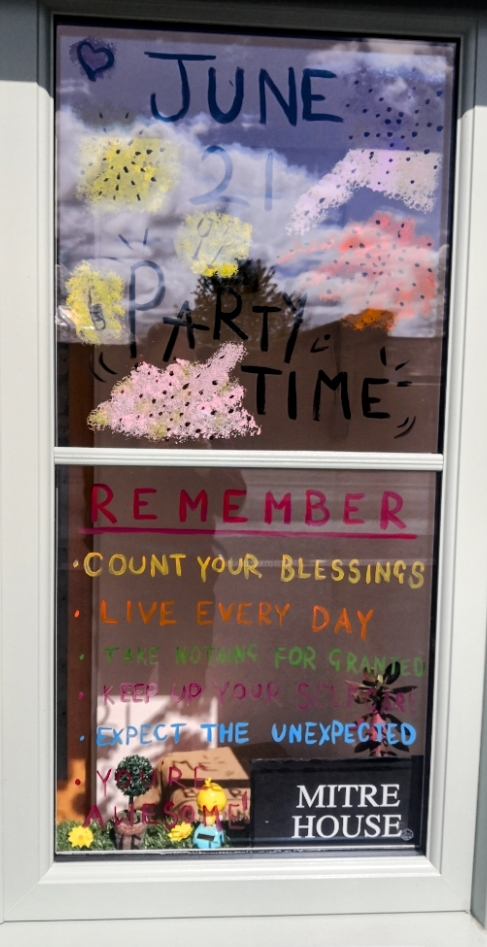 JUNE
21
PARTY
TIME
REMEMBER
• COUNT YOUR BLESSINGS
• LIVE EVERY DAY
• TAKE NOTHING FOR GRANTED
• KEEP UP YOUR SELF CARE
• EXPECT THE UNEXPECTED
• YOU'RE
AWESOME!
MITRE
HOUSE